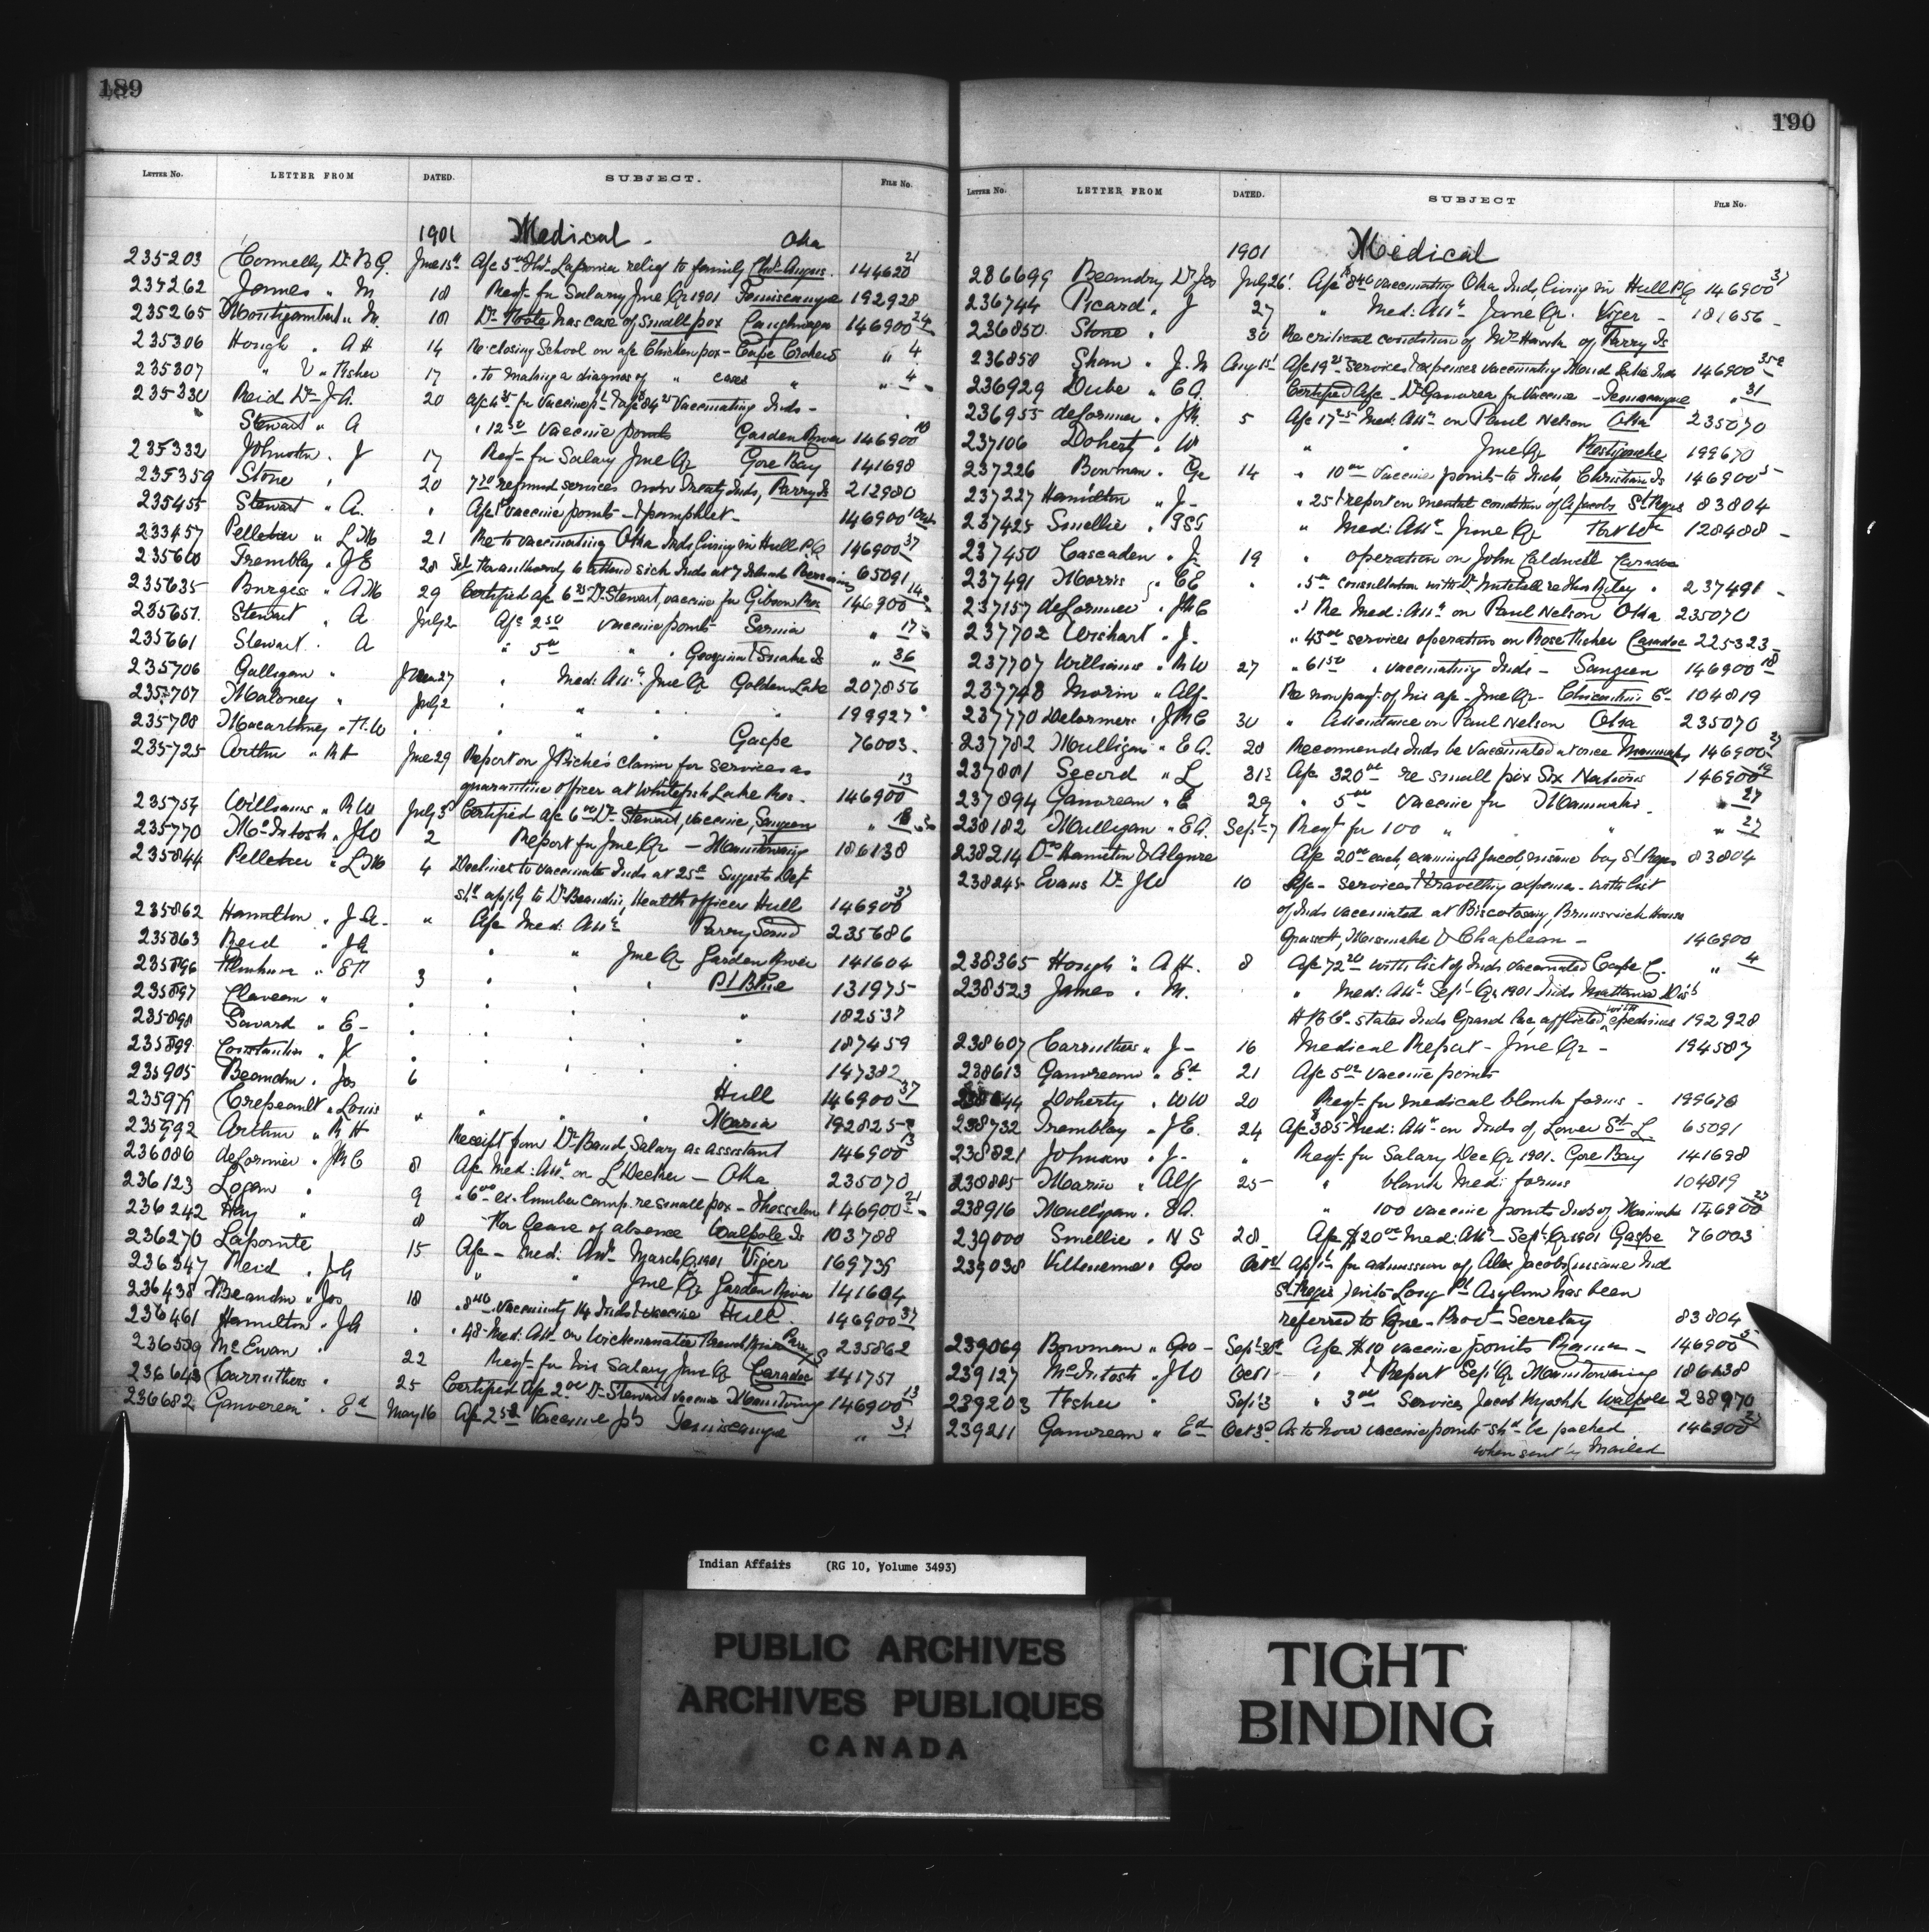 189
LETTER NO. LETTER FROM DATED. SUBJECT. FILE No.
1901 Medical - Oka
235203 Connelly Dr B G. June 15th 144620 21
235262 " M 18 Reqt for Salary June Qr 1901 Temiscamque 192928
235265 Montizambert " 18 Dr has case of Small pox Caughnawaga 146900 24
235306 Hough " A H 14 Re closing School on a/c Chicken pox - Cape Crokers " 4
235307 " V " Fisher 17 " to making a diagnos of " cases " " 4
235330 Reid Dr J A. 20 Vaccinating Inds -
Stewart " A " 12 50 vaccine points Garden River 146900 18
235332 Johnston . J 17 Reqt for Salary June Qr Gore Bay 141698
235359 Stone 20 7 50 services non Treaty Inds, Parry Is 212980
235455 Stewart " A. " A/c vaccine points - & pamphlet - 146900
235457 Pelletier " L M 21 Re to vaccinating Oka Inds living in Hull P.Q 146900 37
235600 Tremblay . J E 28 to attend sick Inds at 7 Islands 65091
235635 Burgess " A M 29 Certified a/c Dr Stewart, vaccine for Gibson Res 146900 14
235651 Stewart " A July 2 A/c 2 50 vaccine points Sarnia " 17
235661 Stewart . A " 5 00 " " Georgina & Snake Is " 36
235706 Galligan " June 27 " Med: Att: June Qr Golden Lake 207856
235707 Maloney " July 2 " " " " 199927
235708 Macarthney " H W Gaspe 76003
235725 Arthur " R H June 29 Report on J Riche's claim for services as
quarantine officer at Whitefish Lake Res. 146900 13
235759 Williams " R W July 3 Certified a/c 6 00 Dr Stewart, vaccine, Saugeen " 18
235770 McIntosh . J W 2 Report for June Qr - Manitowaning 186138
235844 Pelletier " L M 4 Declines to vaccinate Inds at 25c Suggests Dept
shd apply to Dr Beaudin, Health officer Hull 146900 37
235862 Hamilton . J A - " A/c Med: Att: Parry Sound 235686
235863 Reid " J A " " June Qr Garden River 141604
235896 " E P 3 " " " Pt Bleue 131975
235897 " " " " " 182537
235898 " E - " " " " 187459
235899 Constantin " J " " " " 147382
235905 Beaudin . Jos 6 Hull 146900 37
235979 Crepeault " Louis " " " " Maria 192825
235992 Arthur " R H Receipt from Dr Baud, Salary as assistant 146900 13
236086 deLorimier . J M C 8 A/c Med: Att: on L Decker - Oka 235070
236123 Logan . 9 re small pox - Thessalon 146900 21
236242 Hay " 8 For leave of absence Walpole Is 103788
236270 Lapointe 15 A/c - Med: Att: March Qr 1901 Viger 169739
236347 Reid . J A " " June Qr Garden River 141604
236438 Beaudin " Jos 18 " 8 40 vaccinating 14 Inds & vaccine Hull 146900 37
236461 Hamilton . J A . " 48 - Med: Att: on 235862
236589 McEwan . 22 Reqt for his Salary June Qr Caradoc 141751
236643 Carruthers . 25 Certified A/c 2 00 Dr Stewart vaccine Manitowng 146900 13
236682 Gauvreau . Ed May 16 A/c 2 50 Vaccine pts Temiscamque " 31
190
LETTER NO. LETTER FROM DATED. SUBJECT FILE No.
1901 Medical
236699 Beaudry Dr Jos July 26 A/c $8 40 vaccinating Oka Inds, living in Hull P.Q 146900 37
236744 Picard . J 27 " Med: Att: June Qr. Viger - 181656
236850 Stone . 30 Re critical condition of of Parry Is
236858 Shaw . J. M Aug 1st A/c 19 25 services & expenses vaccinating 146900
236929 Dube " C A. Certified A/c - Dr Gauvreau for Vaccine - Temiscamque " 31
236955 deLorimier . J M. 5 A/c 17 25 Med: Att: on Paul Nelson Oka 235070
237106 Dohert . W " " June Qr Restigouche 199670
237226 Bowman . Ge 14 " 10 00 Vaccine points to Inds, Christian Is 146900 5
237227 Hamilton " J - " 25 & report on mental condition of A Jacobs St Regis 83804
237425 Smellie . " Med: Att: June Qr Fort Wm 128488
237450 Cascaden . J 19 " operation on John Caldwell Caradoc
237491 Morris . C E " " 5 00 consultation with Dr Mitchell re 237491
237157 deLorimier . J M C " Re Med: Att: on Paul Nelson Oka 235070
237702 Wishart . J. " 45 00 services operation on Rose Fisher Caradoc 225323
237707 Williams " R W 27 " 61 50 " vaccinating Inds - Saugeen 146900 18
237748 Morin " Alf - Re non payt of his a/c - June Qr - Chicoutimi Co 104819
237770 Delorimere . J M C 30 " Attendance on Paul Nelson Oka 235070
237782 Mulligan " E A. 28 Recommends Inds be vaccinated at once Maniwaki 146900 27
237801 Secord " L 31st A/c 320 00 re small pox Six Nations 146900 19
237894 Gauvreau " E 29 " 5 00 vaccine for Maniwaki " 27
238182 Mulligan " E A. Sept 7 Reqt for 100 " " " 27
238214 Drs Hamilton & Alguire A/c 20 00 each, examing A Jacobs insane boy St Regis 83804
238245 Evans Dr J W 10 A/c - services & travelling expenses - with list
of Inds vaccinated at Biscotasing, Brunswick House
Missinabe & Chapleau - 146900
238365 Hough " A H. 8 A/c 72 20 with list of Inds vaccinated Cape C. " 4
238523 James . M. " Med: Att: Sept Qr 1901 Inds Mattawa Dist
H B C - states Inds Grand Lac afflicted with epidemics 192928
238607 Carruthers " J - 16 Medical Report - June Qr - 194587
238613 Gauvreau " Ed 21 A/c 5 00 vaccine points
Doherty . W W 20 Reqt for medical blank forms - 199670
238732 Tremblay . J E. 24 A/c $385 Med: Att: on Inds of Lower St L 65091
238821 Johnson . J - " Reqt for Salary Dec Qr 1901. Gore Bay 141698
238885 Marin . Alf 25 " blank Medi forms 104819
238916 Mulligan . E A. " 100 vaccine points Inds of Maniwaki 146900 27
239000 Smellie . N S 28 A/c $20 00 Med: Att: - Sept Qr 1901 Gaspe 76003
239038 Villeneuve . Geo Oct 1 for admission of Alex Jacobs (insane Ind
St Regis) into Long Pt Asylum has been
referred to Que - Provl - Secretary 83804
239069 Bowman " Geo - Sept 30th A/c $10 vaccine points Rama - 146900 5
239127 McIntosh . J W Oct 1 " & Report Sept Qr Manitowaning 186138
239203 Fisher . Sept 3 " 3 00 Services Jacob Walpole 238970
239211 Gauvreau " Ed Oct 3d As to how vaccine points shd be packed 146900 27
when sent by Mailed
Indian Affairs (RG 10, Volume 3493)
PUBLIC ARCHIVES
ARCHIVES PUBLIQUES
CANADA
TIGHT
BINDING